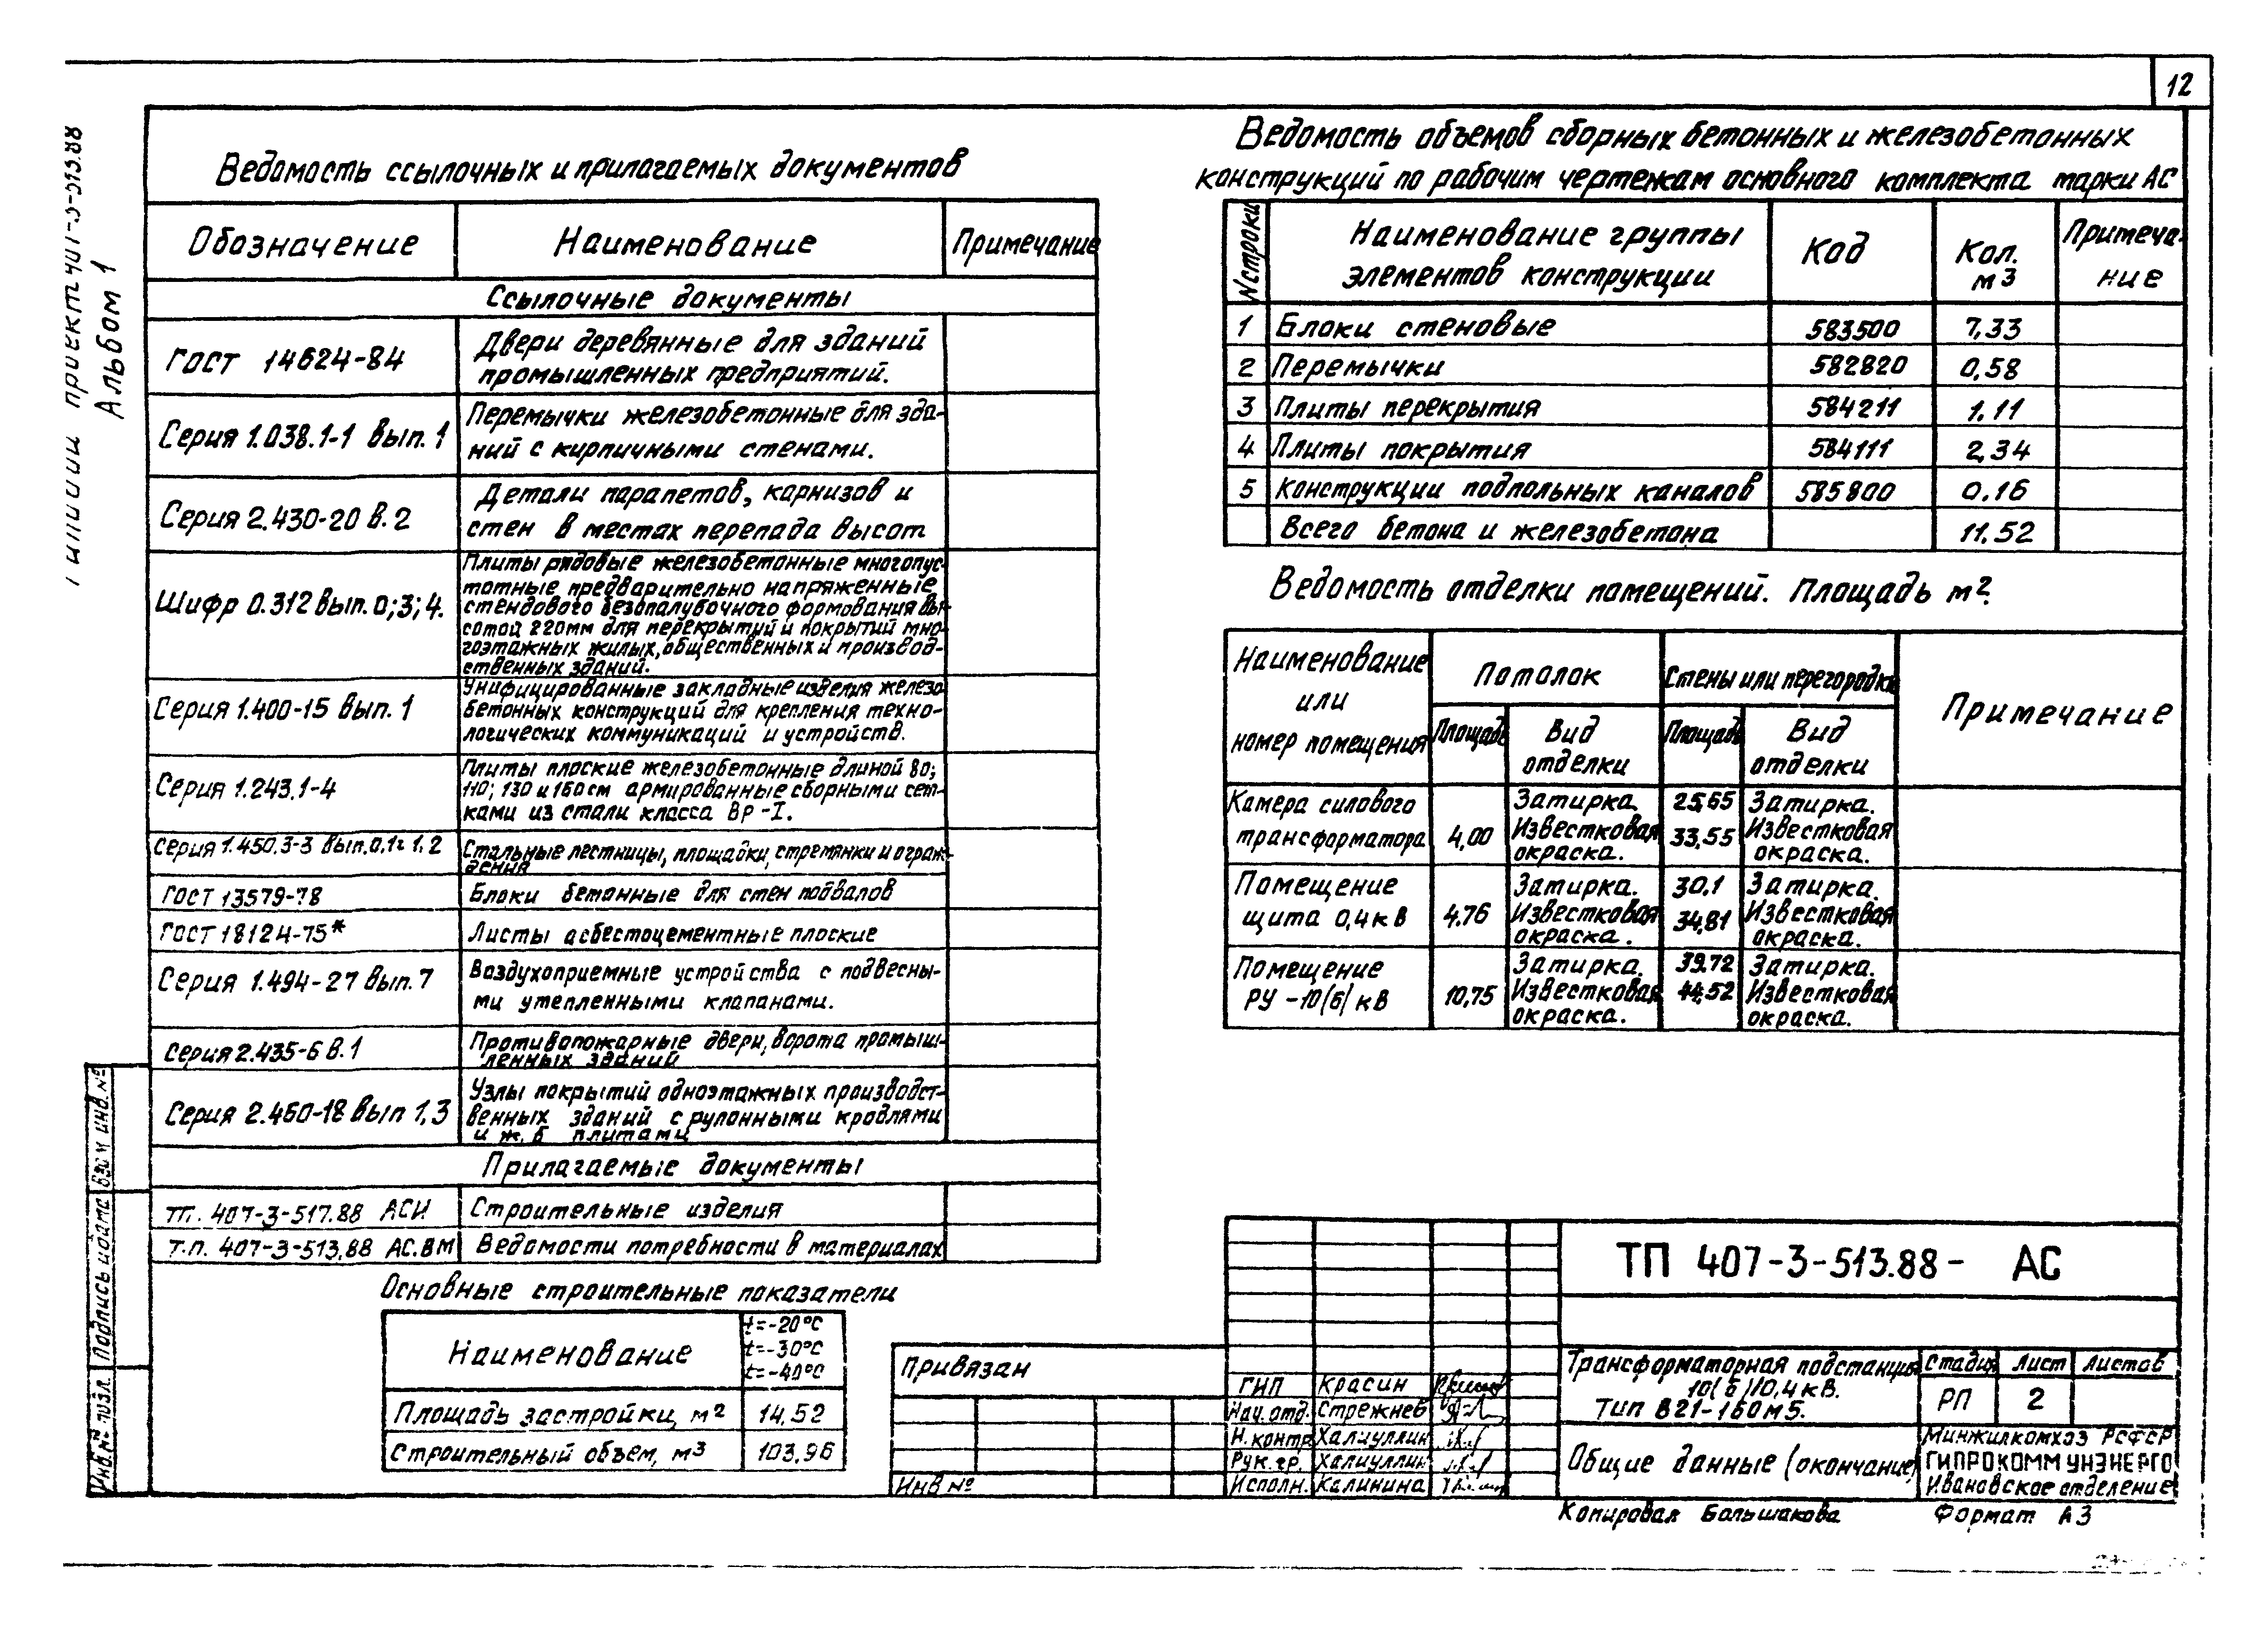 12
Альбом 1
Ведомость ссылочных и прилагаемых документов
Обозначение Наименование Примечание
Ссылочные документы
ГОСТ 14624-84 Двери деревянные для зданий
промышленных предприятий.
Серия 1.038.1-1 вып. 1 Перемычки железобетонные для зда-
ний с кирпичными стенами.
Серия 2.430-20 в. 2 Детали парапетов, карнизов и
стен в местах перепада высот
Шифр 0.312 вып. 0; 3; 4. Плиты рядовые железобетонные многопус-
тотные предварительно напряженные
стендового безопалубочного формования вы-
сотой 220мм для перекрытий и покрытий мно-
гоэтажных жилых, общественных и производ-
ственных зданий.
Серия 1.400-15 вып. 1 Унифицированные закладные изделия железо
бетонных конструкций для крепления техно-
логических коммуникаций и устройств.
Серия 1.243.1-4 Плиты плоские железобетонные длиной 80;
110; 130 и 160см армированные сборными сет-
ками из стали класса Вр-I.
Серия 1.450.3-3 вып. 0,1ч 1,2 Стальные лестницы, площадки, стремянки и ограж-
дения
ГОСТ 13579-78 Блоки бетонные для стен подвалов
ГОСТ 18124-75* Листы асбестоцементные плоские
Серия 1.494-27 вып. 7 Воздухоприемные устройства с подвесны-
ми утепленными клапанами.
Серия 2.435-6 в. 1 Противопожарные двери, ворота промыш-
ленных зданий
Серия 2.460-18 вып 1,3 Узлы покрытий одноэтажных производст-
венных зданий с рулонными кровлями
и ж. б плитами
Прилагаемые документы
ТП. 407-3-517.88 АСИ Строительные изделия
Т.П. 407-3-513.88 АС.ВМ Ведомости потребности в материалах
Основные строительные показатели
Наименование t=-20°С
t=-30°С
t=-40°С
Площадь застройки, м2 14,52
Строительный объем, м3 103,96
Ведомость объемов сборных бетонных и железобетонных
конструкций по рабочим чертежам основного комплекта марки АС
N строки Наименование группы элементов конструкции Код Кол. м3 Примеча-
ние
1 Блоки стеновые 583500 7,33
2 Перемычки 582820 0,58
3 Плиты перекрытия 584211 1.11
4 Плиты покрытия 584111 2,34
5 Конструкции подпольных каналов 585800 0.16
Всего бетона и железобетона 11.52
Ведомость отделки помещений. Площадь м2.
Наименование или номер помещения Потолок Стены или перегородки Примечание
Площадь Вид отделки Площадь Вид отделки
Камера силового Затирка. 25,65 Затирка.
трансформатора 4,00 Известковая 33,55 Известковая
окраска. окраска.
Помещение Затирка. 30,1 Затирка.
щита 0,4кВ 4,76 Известковая 34,81 Известковая
окраска. окраска.
Помещение Затирка. 39.72 Затирка.
РУ-10(6)кВ 10,75 Известковая 44,52 Известковая
окраска. окраска.
ТП 407-3-513.88- АС
Трансформаторная подстанция
10(6)/0,4кВ.
Тип В21-160М5.
Стадия Лист Листов
РП 2
Общие данные (окончание)
Минжилкомхоз РСФСР
ГИПРОКОММУНЭНЕРГО
Ивановское отделение
ГИП Красин
Нач. отд. Стрежнев
Н. контр Халиуллин
Рук. гр. Халиуллин
Исполн. Калинина
Привязан
Инв №
Взам инв. №
Подпись и дата
Инв. № подл.
Копировал Большакова Формат А3